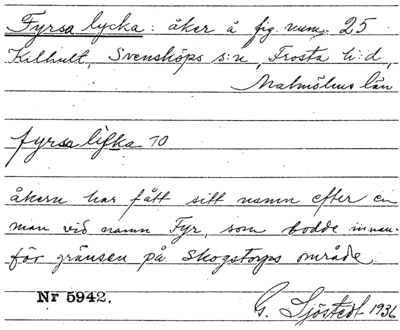 Fyrsa lycka: åker å fig. num. 25
Kilhult, Svensköps s:n, Frosta h:d,
Malmöhus län
fyrsa lifka 10
åkern har fått sitt namn efter en
man vid namn Fyr, som bodde innan-
för gränsen på Skogstorps område.
Nr 5942.
G. Sjöstedt 1936